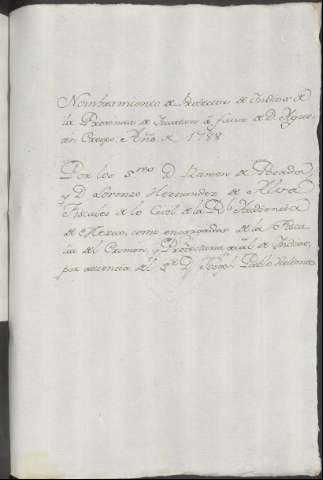 Nombramiento de Protector de Indios de
la Provincia de Yucatan à favor de D. Agus
tin Crespo. Año de 1788
Por los S.res D. Ramon de Posada,
y D. Lorenzo Hernandez de Alva
Fiscales de lo Civil de la Rl. Audiencia
de Mexico, como encargados de la Fisca
lia del Crimen, y Protecturia gral de Indios,
por ausencia del Sr. D. Pablo